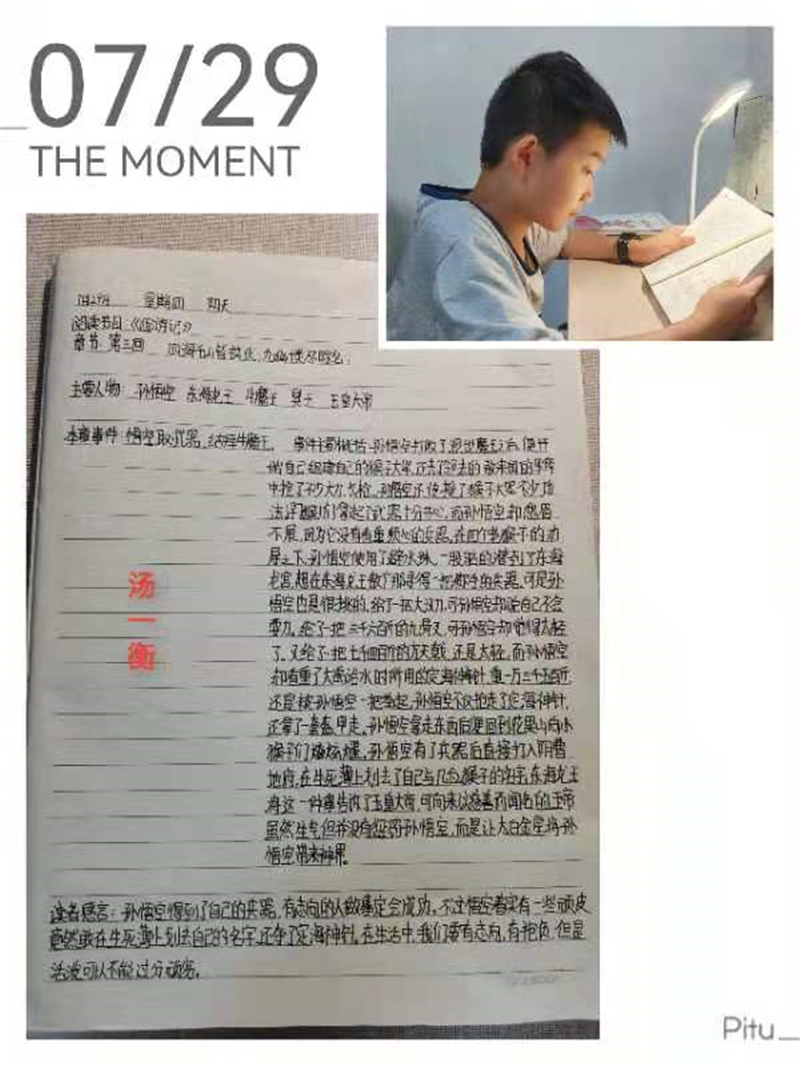 07/29
THE MOMENT
7月29日 星期四 阴天
阅读书目《西游记》
章节 第三回 四海千山皆拱伏,九幽
主要人物: 孙悟空 东海龙王 牛魔王 玉皇大帝
本章事件:悟空取武器,结拜牛魔王。 事件主要概括:孙悟空打败了混世魔王之后,便开
始自己组建自己的猴子大军,还去了
中抢了不少大刀、长枪。孙悟空还传授了猴子大军不少功
法,拿起了武器十分开心,而孙悟空却愁眉
不展,因为它没有看重顺心的兵器。在四个老猴子的劝
之下,孙悟空使用了避水珠,一股脑的潜到了东海
龙宫,想在东海龙王敖广那寻得一把称手的兵器,可是孙
悟空也是很挑的,给了一把大汉刀,可孙悟空却说自己不会
耍刀。给了一把三千六百斤的九骨叉,可孙悟空却觉得太轻
了,又给了一把七千两百斤的方天戟,还是太轻,而孙悟空
却看重了大禹治水时所用的定海神针,重一万三千五百斤,
还是被孙悟空一把拿起,孙悟空不仅抢走了定海神针,
还拿了一套盔甲走。孙悟空拿走东西后便回到花果山向小
猴子们炫耀。孙悟空有了兵器后直接打入阴曹
地府,在生死薄上划去了自己与几位猴子的名字,东海龙王
将这一种事告诉了玉皇大帝,可向来以慈善而闻名的玉帝
虽然生气但并没有惩罚孙悟空,而是让太白金星将孙
悟空带来神界。
读者感言:孙悟空得到了自己的兵器,有志向的人做事定会成功。不过悟空着实有一些顽皮
竟然敢在生死薄上划去自己的名字,还夺了定海神针。在生活中,我们要有志向,有抱负,但是
活泼可以不能过分顽劣。
汤
一
衡
Pitu